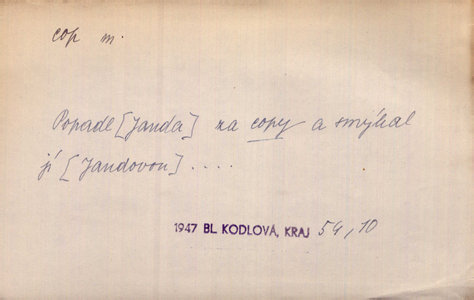 cop m.
Popadl [Janda] za copy a smýkal
jí [Jandovou] ....
1947 BL. KODLOVÁ, KRAJ 54,10